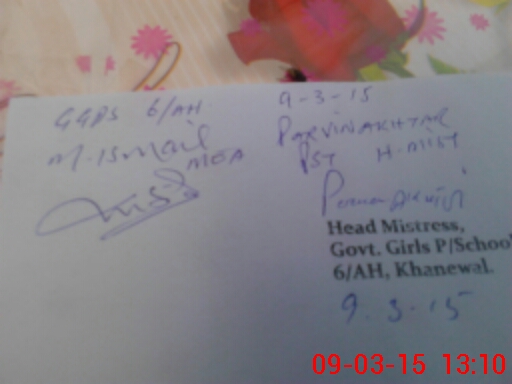 GGPS 6/AH
M. Ismail
MEA
9-3-15
PARVIN AKHTAR
PST H-MIST
Head Mistress,
Govt. Girls P/School
6/AH, Khanewal.
9.3.15
09-03-15 13:10